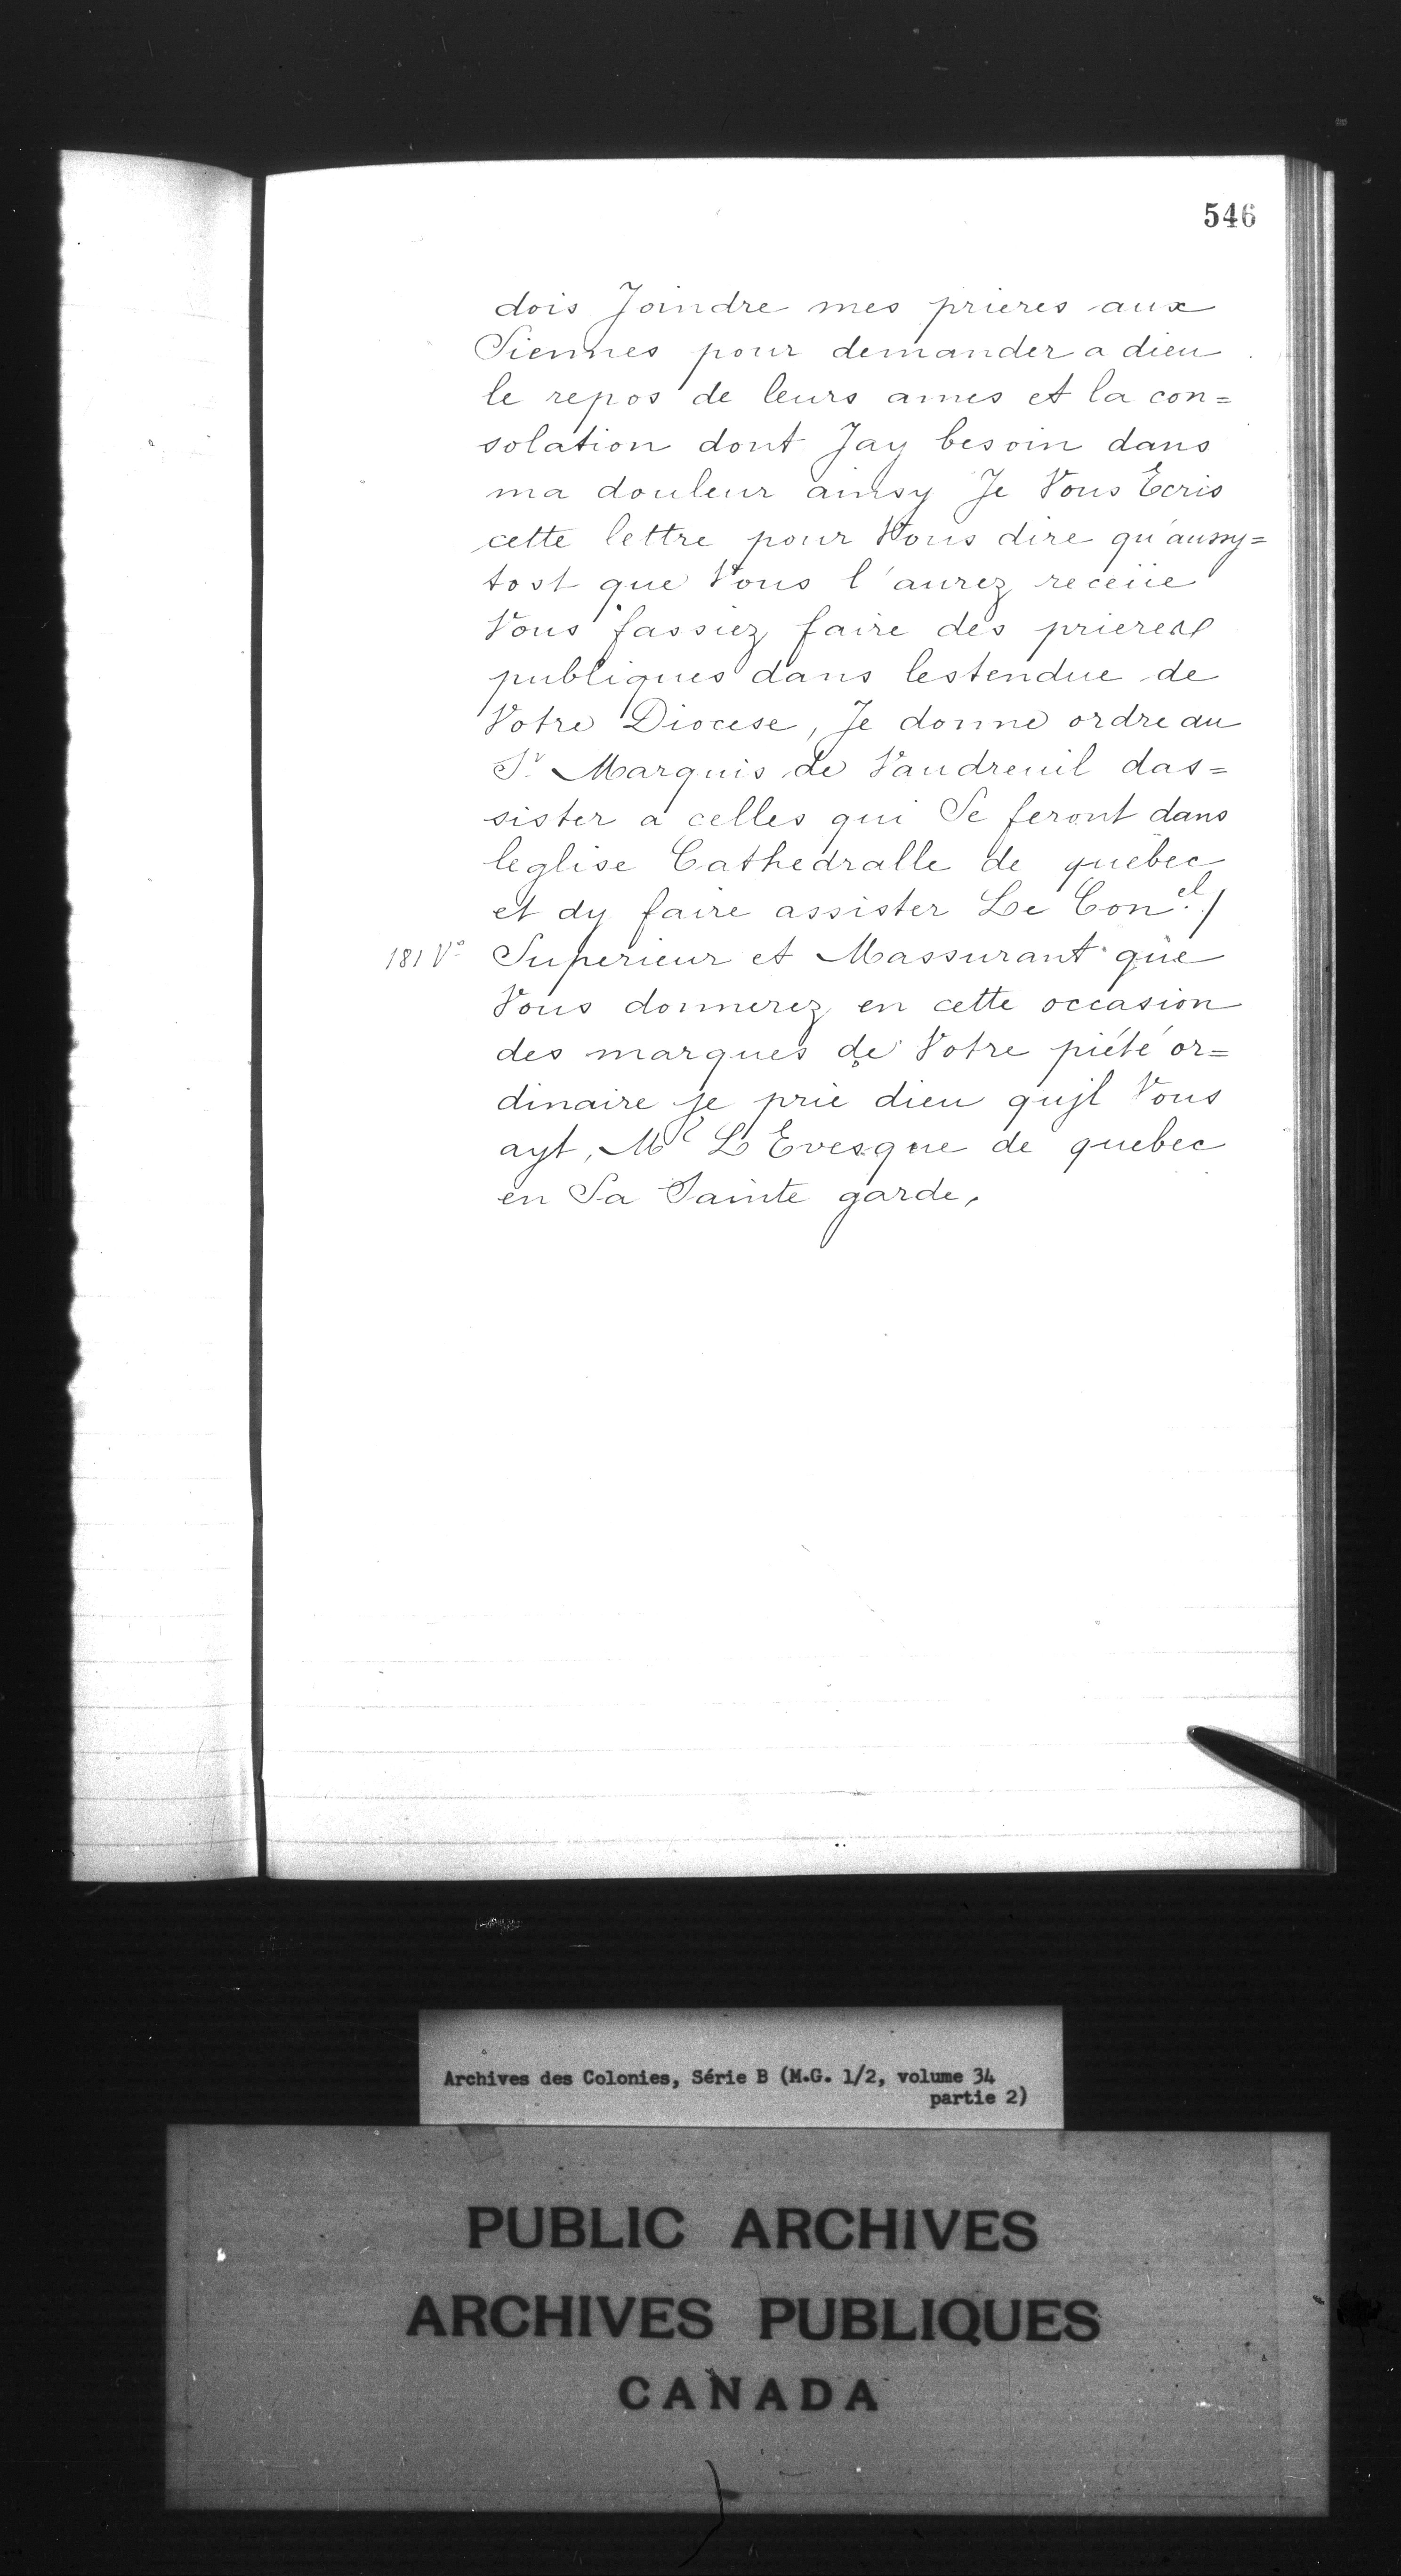 546
dois Joindre mes prieres aux
Siennes pour demander a dieu
le repos de leurs ames et la con=
solation dont Jay besoin dans
ma douleur ainsy Je Vous Ecris
cette lettre pour Vous dire qu'aussy=
tost que Vous l'aurez receüe
Vous fassiez faire des prieres
publiques dans lestendue de
Votre Diocese, Je donne ordre au
Sr. Marquis de Vaudreuil das=
sister a celles qui Se feront dans
leglise Cathedralle de québec
et dy faire assister Le Con.el /
181 Vo Superieur et Massurant que
Vous donnerez en cette occasion
des marques de Votre piété or=
dinaire je prie dieu qujl Vous
ayt, Mr L Evesque de quebec
en Sa Sainte garde.
Archives des Colonies, Série B (M.G. 1/2, volume 34
partie 2)
PUBLIC ARCHIVES
ARCHIVES PUBLIQUES
CANADA